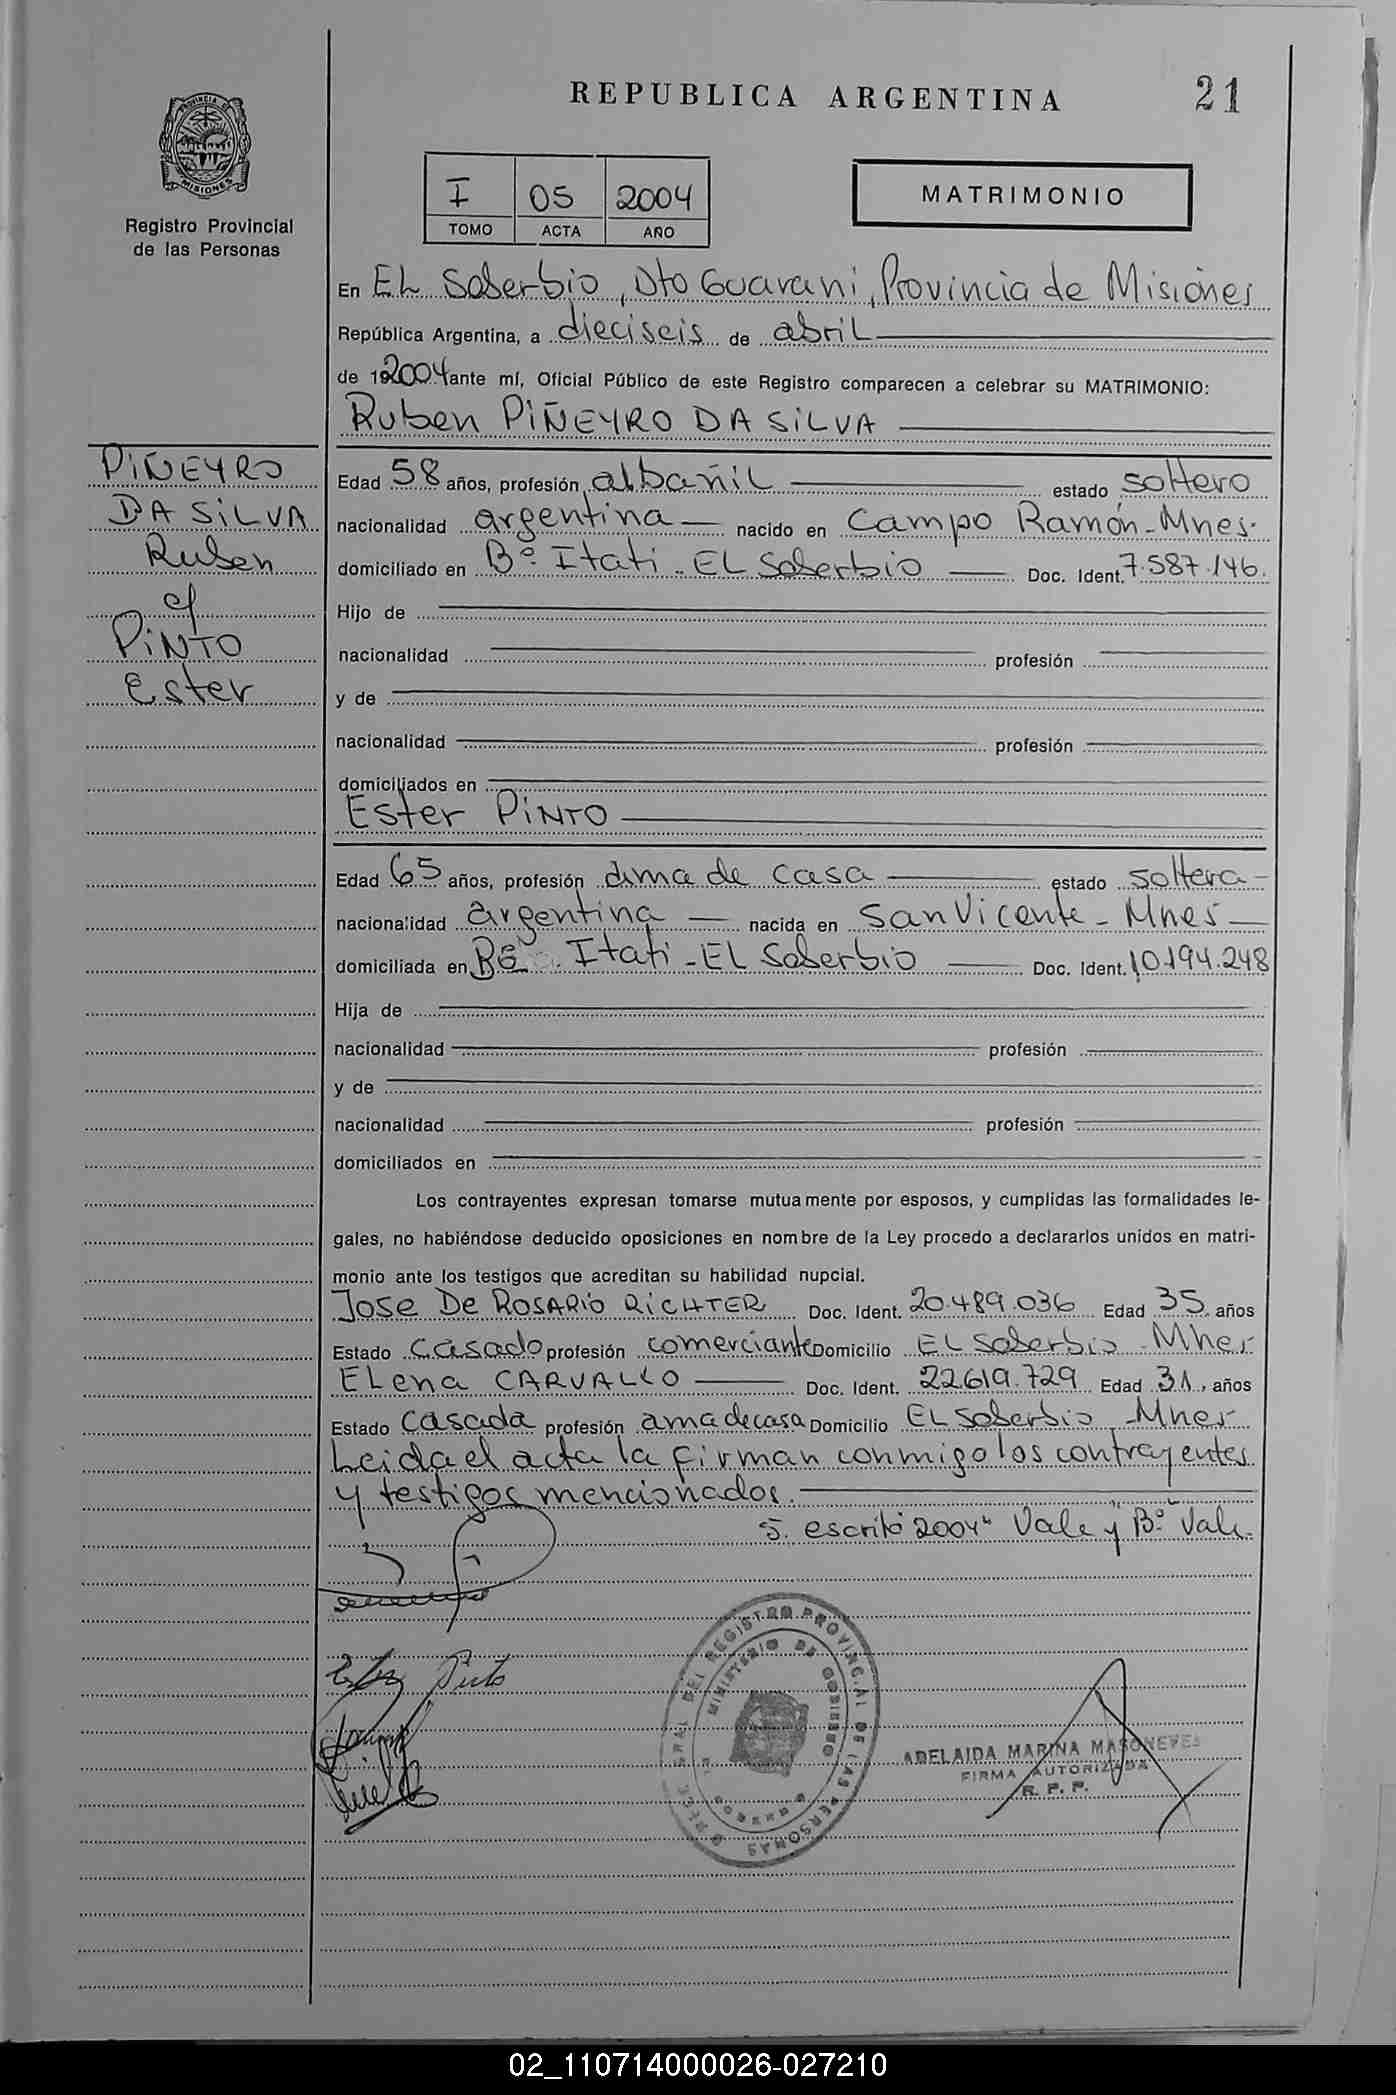 REPUBLICA ARGENTINA
21
PROVINCIA DE
MISIONES
Registro Provincial
de las Personas
I 05 2004
TOMO ACTA AÑO
MATRIMONIO
En EL Soberbio, Dto Guarani, Provincia de Misiones
República Argentina, a dieciseis de abril
de 192004 ante mí, Oficial Público de este Registro comparecen a celebrar su MATRIMONIO:
Ruben PIÑEYRO DA SILVA
PIÑEYRO
DA SILVA
Ruben
c/
PINTO
Ester
Edad 58 años, profesión albañil estado soltero
nacionalidad argentina nacido en Campo Ramón - Mnes.
domiciliado en Bº Itati - EL Soberbio Doc. Ident. 7.587.146.
Hijo de
nacionalidad profesión
y de
nacionalidad profesión
domiciliados en
Ester PINTO
Edad 65 años, profesión ama de casa estado soltera
nacionalidad argentina nacida en San Vicente - Mnes
domiciliada en Bº Itati - EL Soberbio Doc. Ident. 10.194.248
Hija de
nacionalidad profesión
y de
nacionalidad profesión
domiciliados en
Los contrayentes expresan tomarse mutuamente por esposos, y cumplidas las formalidades le-
gales, no habiéndose deducido oposiciones en nombre de la Ley procedo a declararlos unidos en matri-
monio ante los testigos que acreditan su habilidad nupcial.
Jose De ROSARIO RICHTER Doc. Ident. 20.489.036 Edad 35 años
Estado casado profesión comerciante Domicilio EL Soberbio - Mnes
ELena CARVALLO Doc. Ident. 22.619.729 Edad 31 años
Estado casada profesión ama de casa Domicilio EL Soberbio - Mnes
Leida el acta la firman conmigo los contrayentes
y testigos mencionados.
S. escrito "2004" Vale y "Bº" Vale.
Pinto
REGISTRO PROVINCIAL DE LAS PERSONAS
MINISTERIO DE GOBIERNO
ADELAIDA MARINA
FIRMA AUTORIZADA
R. P. P.
02_110714000026-027210